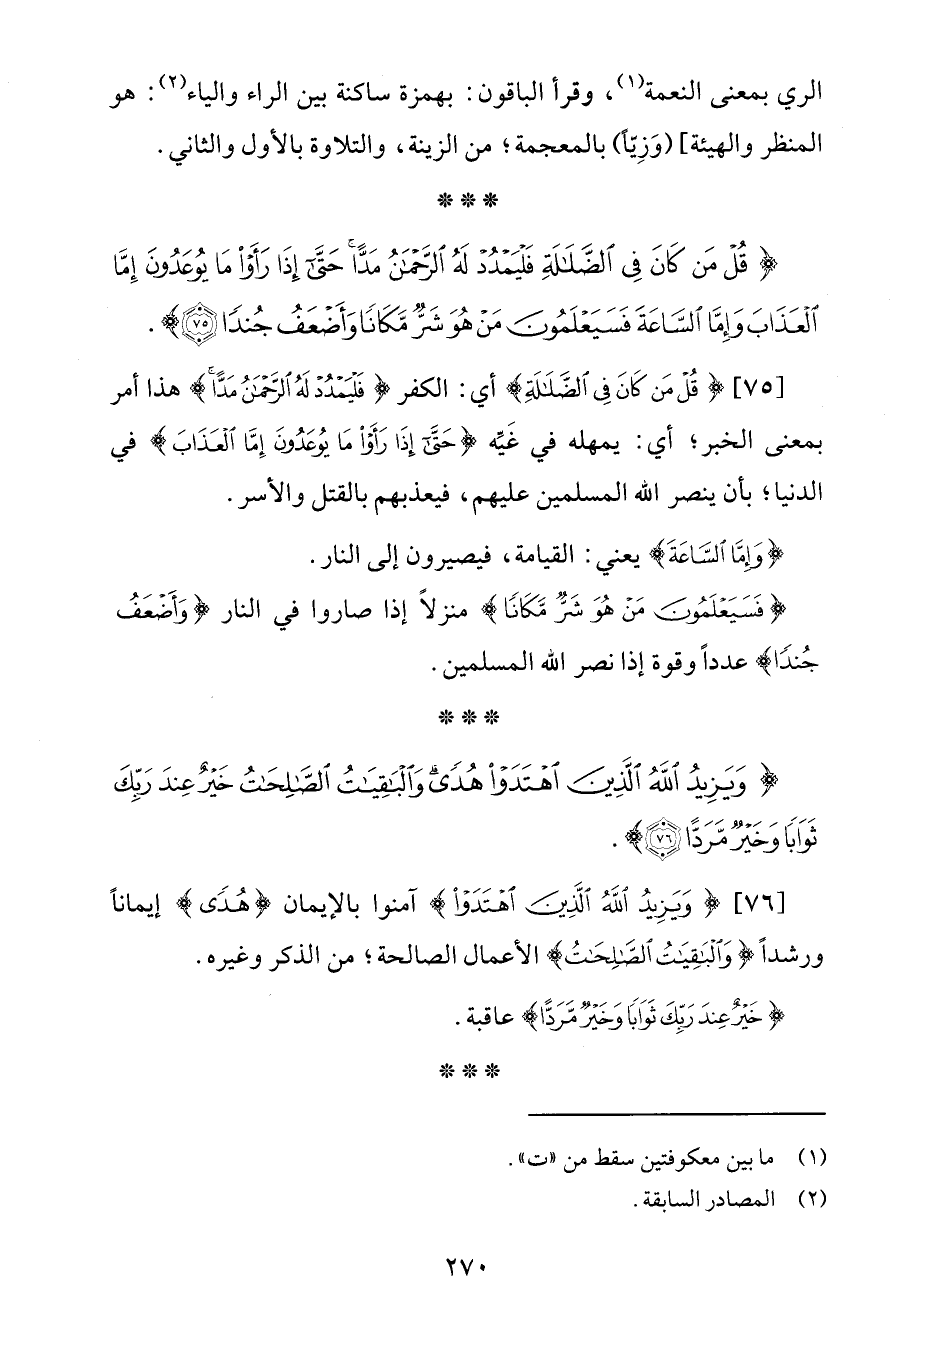 الري بمعنى النعمة(١)، وقرأ الباقون: بهمزة ساكنة بين الراء والياء(٢): هو
المنظر والهيئة] (وَزِيّاً) بالمعجمة؛ من الزينة، والتلاوة بالأول والثاني.
* * *
﴿ قُلْ مَن كَانَ فِى ٱلضَّلَٰلَةِ فَلْيَمْدُدْ لَهُ ٱلرَّحْمَٰنُ مَدًّا ۚ حَتَّىٰٓ إِذَا رَأَوْا۟ مَا يُوعَدُونَ إِمَّا
ٱلْعَذَابَ وَإِمَّا ٱلسَّاعَةَ فَسَيَعْلَمُونَ مَنْ هُوَ شَرٌّ مَّكَانًا وَأَضْعَفُ جُندًا ۝٧٥ ﴾.
[٧٥] ﴿ قُلْ مَن كَانَ فِى ٱلضَّلَٰلَةِ ﴾ أي: الكفر ﴿ فَلْيَمْدُدْ لَهُ ٱلرَّحْمَٰنُ مَدًّا ۚ ﴾ هذا أمر
بمعنى الخبر؛ أي: يمهله في غَيِّه ﴿ حَتَّىٰٓ إِذَا رَأَوْا۟ مَا يُوعَدُونَ إِمَّا ٱلْعَذَابَ ﴾ في
الدنيا؛ بأن ينصر الله المسلمين عليهم، فيعذبهم بالقتل والأسر.
﴿ وَإِمَّا ٱلسَّاعَةَ ﴾ يعني: القيامة، فيصيرون إلى النار.
﴿ فَسَيَعْلَمُونَ مَنْ هُوَ شَرٌّ مَّكَانًا ﴾ منزلاً إذا صاروا في النار ﴿ وَأَضْعَفُ
جُندًا ﴾ عدداً وقوة إذا نصر الله المسلمين.
* * *
﴿ وَيَزِيدُ ٱللَّهُ ٱلَّذِينَ ٱهْتَدَوْا۟ هُدًى ۗ وَٱلْبَٰقِيَٰتُ ٱلصَّٰلِحَٰتُ خَيْرٌ عِندَ رَبِّكَ
ثَوَابًا وَخَيْرٌ مَّرَدًّا ۝٧٦ ﴾.
[٧٦] ﴿ وَيَزِيدُ ٱللَّهُ ٱلَّذِينَ ٱهْتَدَوْا۟ ﴾ آمنوا بالإيمان ﴿ هُدًى ﴾ إيماناً
ورشداً ﴿ وَٱلْبَٰقِيَٰتُ ٱلصَّٰلِحَٰتُ ﴾ الأعمال الصالحة؛ من الذكر وغيره.
﴿ خَيْرٌ عِندَ رَبِّكَ ثَوَابًا وَخَيْرٌ مَّرَدًّا ﴾ عاقبة.
* * *
(١) ما بين معكوفتين سقط من «ت».
(٢) المصادر السابقة.
٢٧٠